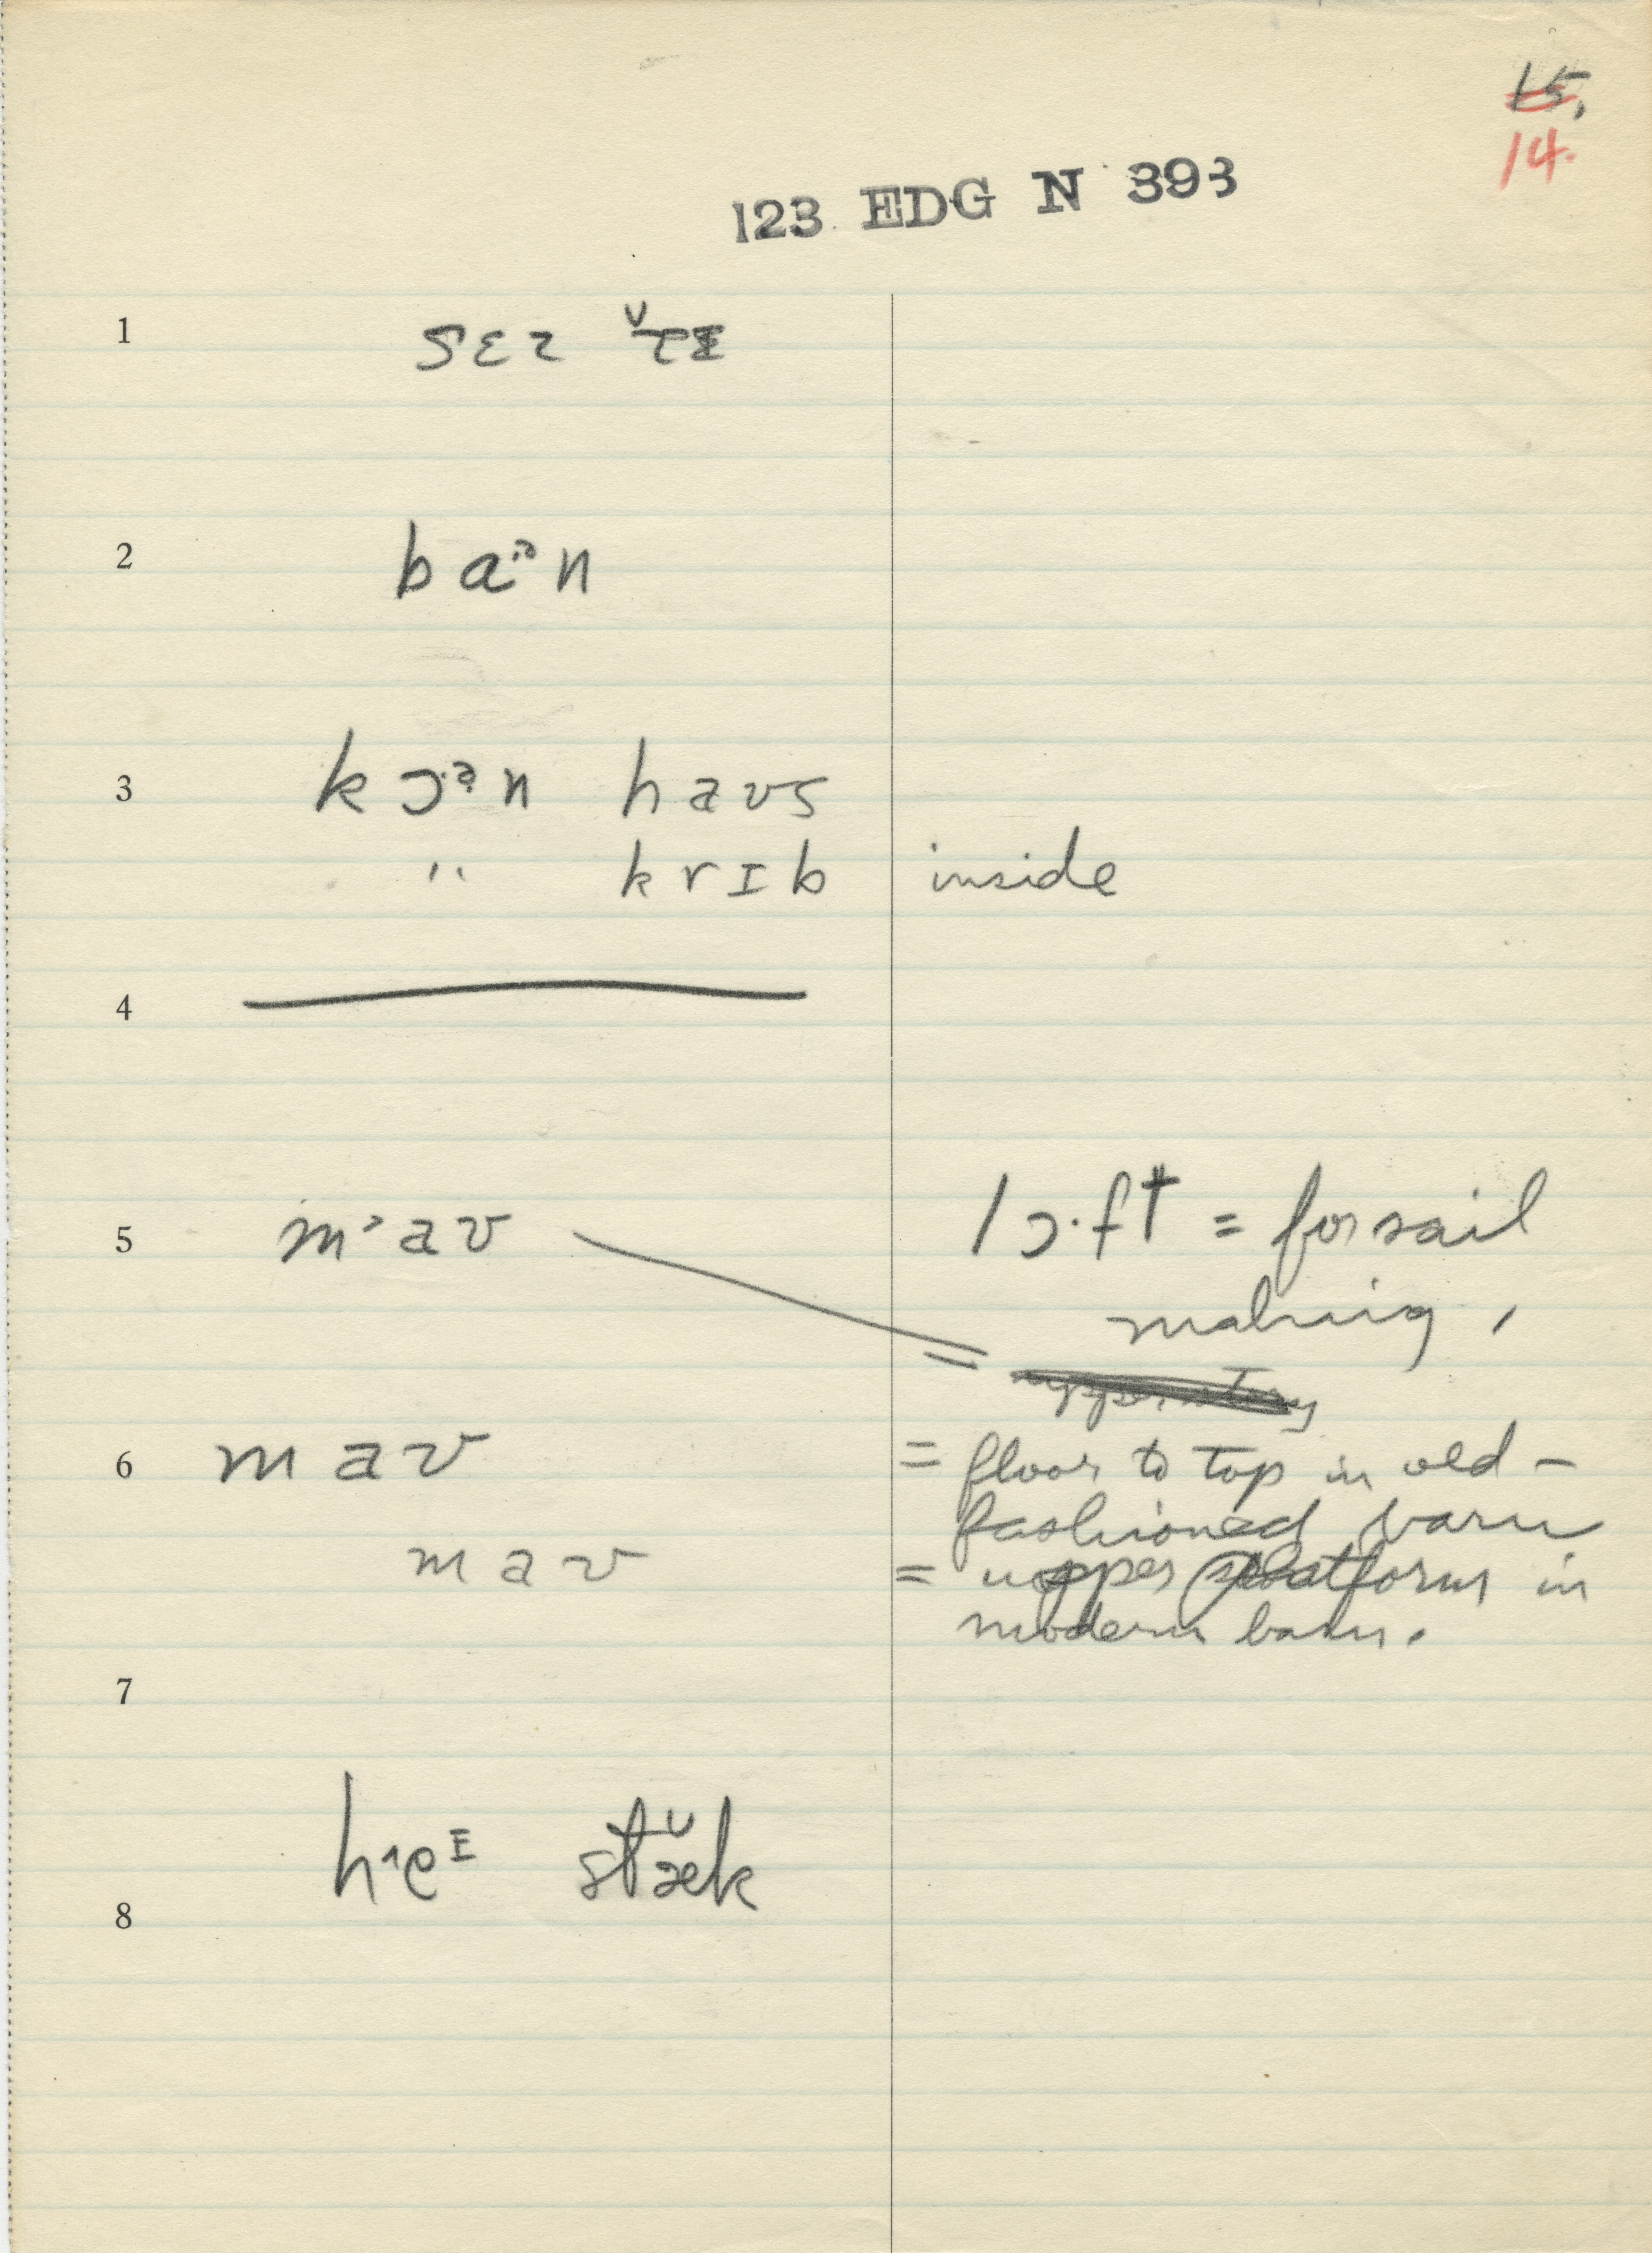 15.
14.
123 EDG N 393
1
2 ba·ᵊn
3 kɔ·ᵊn haʊs
" krɪb inside
4
5 m aʊ lɔ·ft = for sail
making,
=
upper story
6 maʊ = floor to top in old-
fashioned barn
maʊ = upper platform in
modern barn.
7
8 stæk